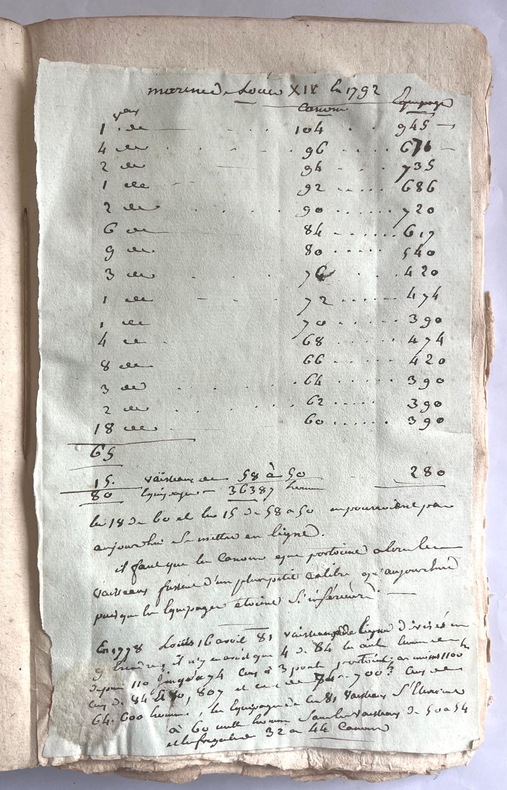 marine de Louis XIV en 1792
Canons Equipage
1 de 104 945
4 de 96 676
2 de 94 735
1 de 92 686
2 de 90 720
6 de 84 617
9 de 80 540
3 de 76 420
1 de 72 474
1 de 70 390
4 de 68 474
8 de 66 420
3 de 64 390
2 de 62 390
18 de 60 390
65
15. vaisseaux de 58 à 50 280
80 Equipages 36387 hommes
les 18 de 60 et les 15 de 58 a 50 ne pourroient pas
aujourd'hui se mettre en ligne.
il faut que les canons que portoient alors les
vaisseaux fussent d'un plus petit calibre qu'aujourd'hui
puisque les Equipages étoient si inférieurs.
En 1778 Louis 16 avoit 81 vaisseaux de ligne divisés en
9 il n'y en avoit que 4 de 64 les autres de
110 jusqu'a 74 ceux a 3 ponts portoient au moins 1100
ceux de 84 et 80, 807 et ceux de 74 = 700 ceux de
64. 600 hommes. les Equipages de ces 81 vaisseaux
a 60 mille hommes sans les vaisseaux de 50 a 54
et les fregates de 32 a 44 Canons